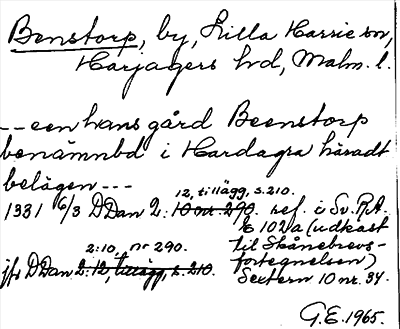 Benstorp, by, Lilla Harrie sn,
Harjagers hd, Malm. l.
-- een hans gård Beenstorp
benämnbd i Hardagra häradt
belägen ---
12, tillägg, s. 210.
1331 6/3 DDan 2: 10 nr. 290. ref. i Sv. R.A.
E 102a (udkast
2:10, nr 290. til Skånebrevs-
jfr DDan 2: 12, tillägg, s. 210. fortegnelsen)
Sextern 10 nr. 34.
G.E. 1965.